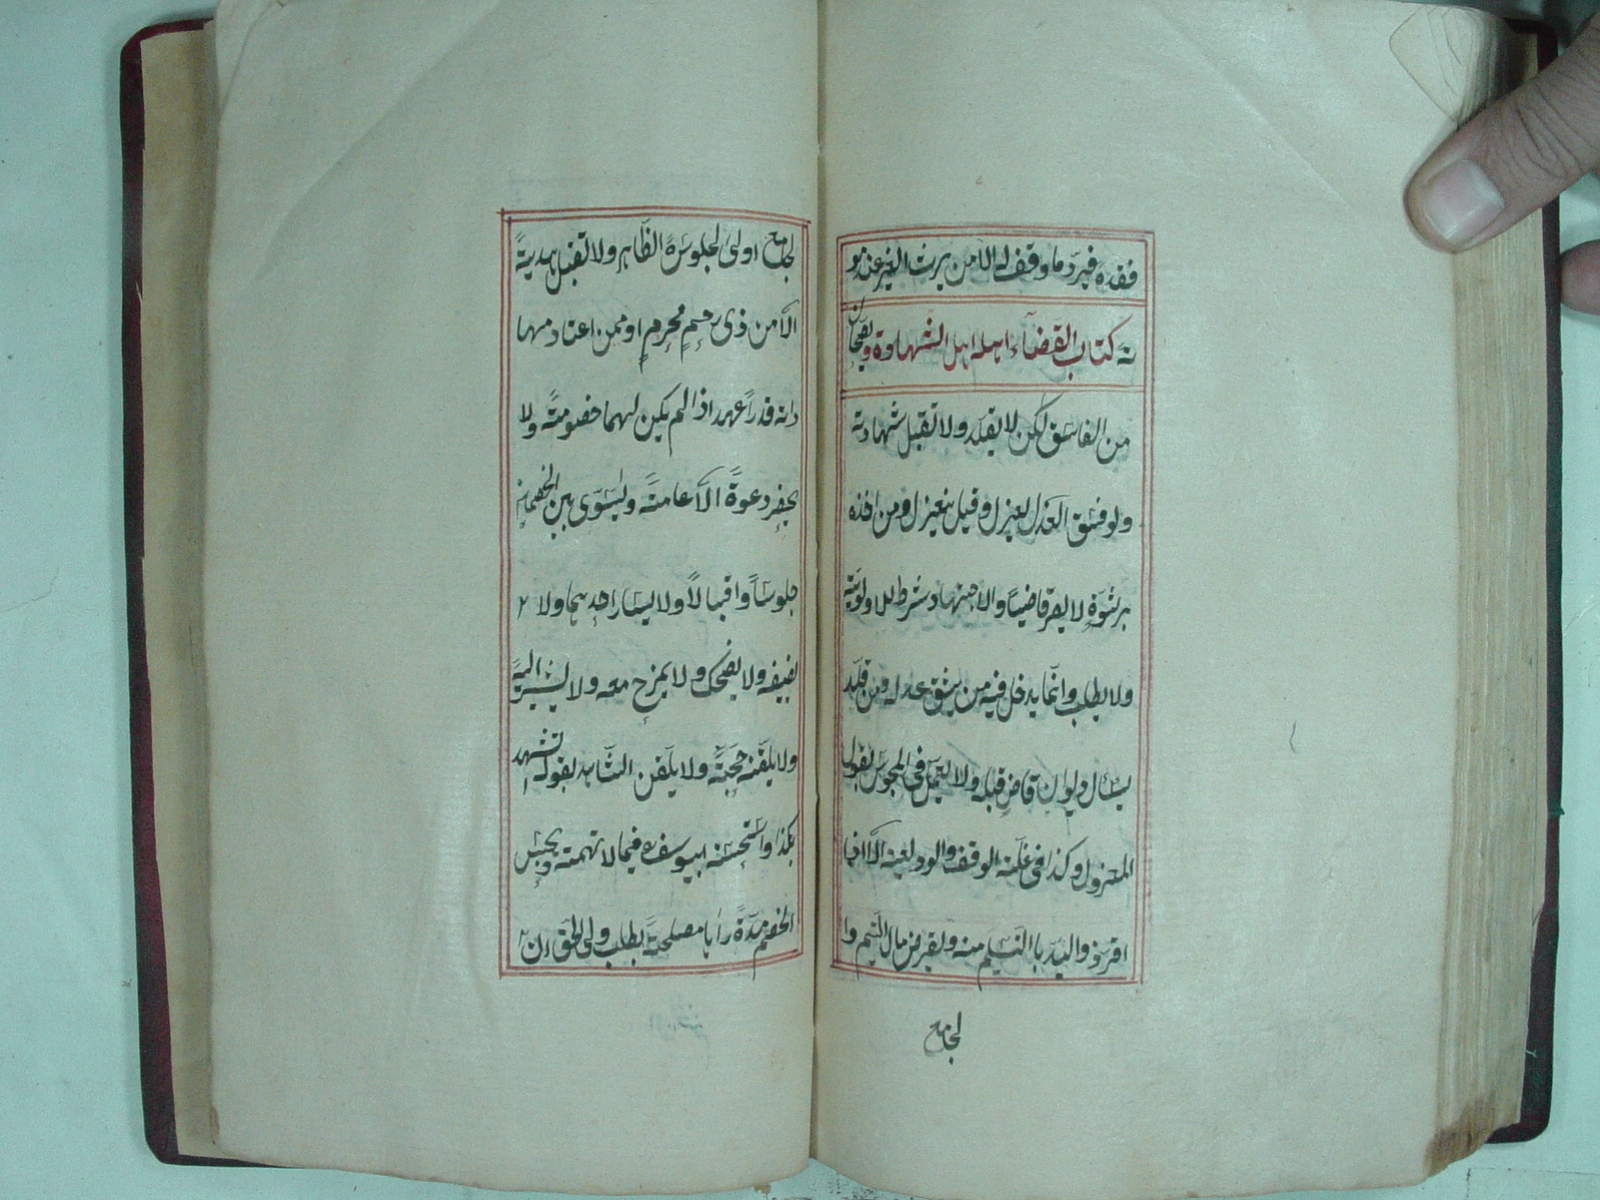 فقده فيرد ما وقف له الا من يرث الغير عند مو
ته كتاب القضاء اهله اهل الشهادة ويصحان
من الفاسق لكن لا يقلد ولا تقبل شهادته
ولو فسق العدل يعزل وقيل ينعزل ومن اخذه
برشوة لا يصر قاضيا والاجتهاد شرط للاولوية
ولا يطلب وانما يدخل فيه من يثق عدله ومن قلد
يسئال ديوان قاض قبله ولا يعمل فى المحبوس بقول
المعزول وكذا فى غلة الوقف والوديعة الا اذا
اقر ذو اليد با التسليم منه ويقرض مال اليتيم وا
لجامع
لجامع اولى لجلوسه الظاهر ولا تقبل هدية
الا من ذى رحم محرم او ممن اعتاد مهـا
داته قدرا عهد اذا لم يكن لهما خصومة ولا
يحضر دعوة الا عامة وليسوى بين الخصمين
جلوسا واقبالا ولا يسار احدهما ولا
يضيفه ولا يضحك ولا يمزح معه ولا يشير اليه
ولا يلقنه حجة ولا يلقن الشاهد بقوله اتشهد
بكذا واستحسنه ابيوسف فيما لا تهمة ويحبس
الخصم مدة راها مصلحة بطلب ولى الحق ان